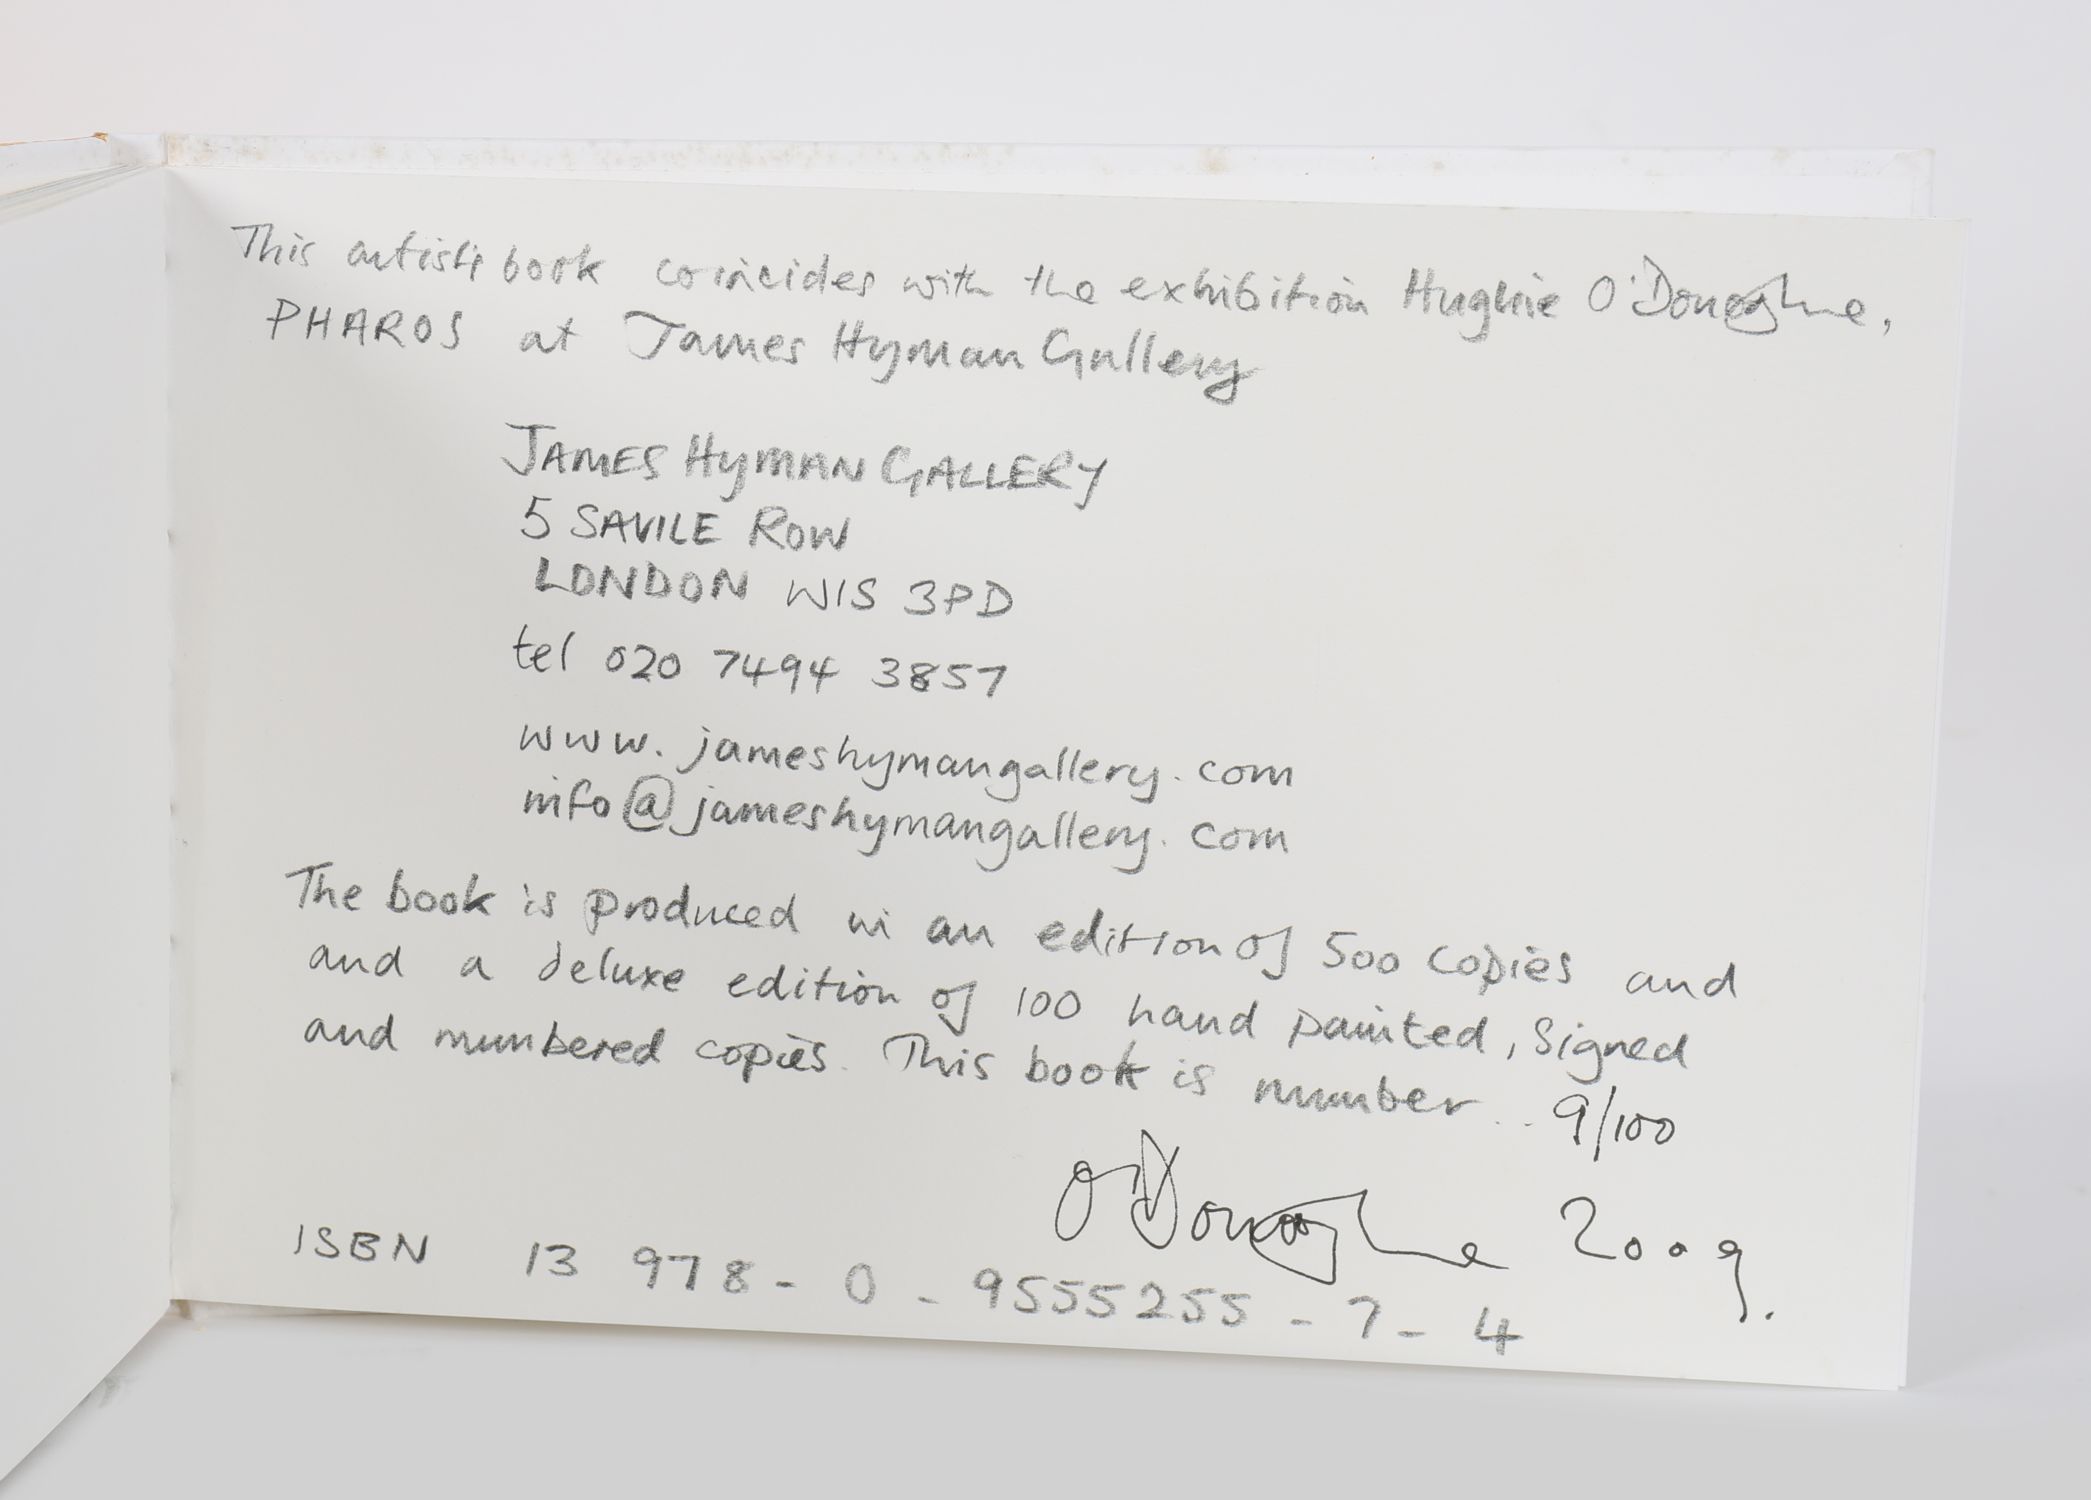 This artists book coincides with the exhibition Hughie O'Donoghue,
PHAROS at James Hyman Gallery
JAMES HYMAN GALLERY
5 SAVILE ROW
LONDON W1S 3PD
tel 020 7494 3857
www.jameshymangallery.com
info@jameshymangallery.com
The book is produced in an edition of 500 copies and
and a deluxe edition of 100 hand painted, signed
and numbered copies. This book is number .. 9/100
O'Donoghue 2009.
ISBN 13 978-0-9555255-7-4